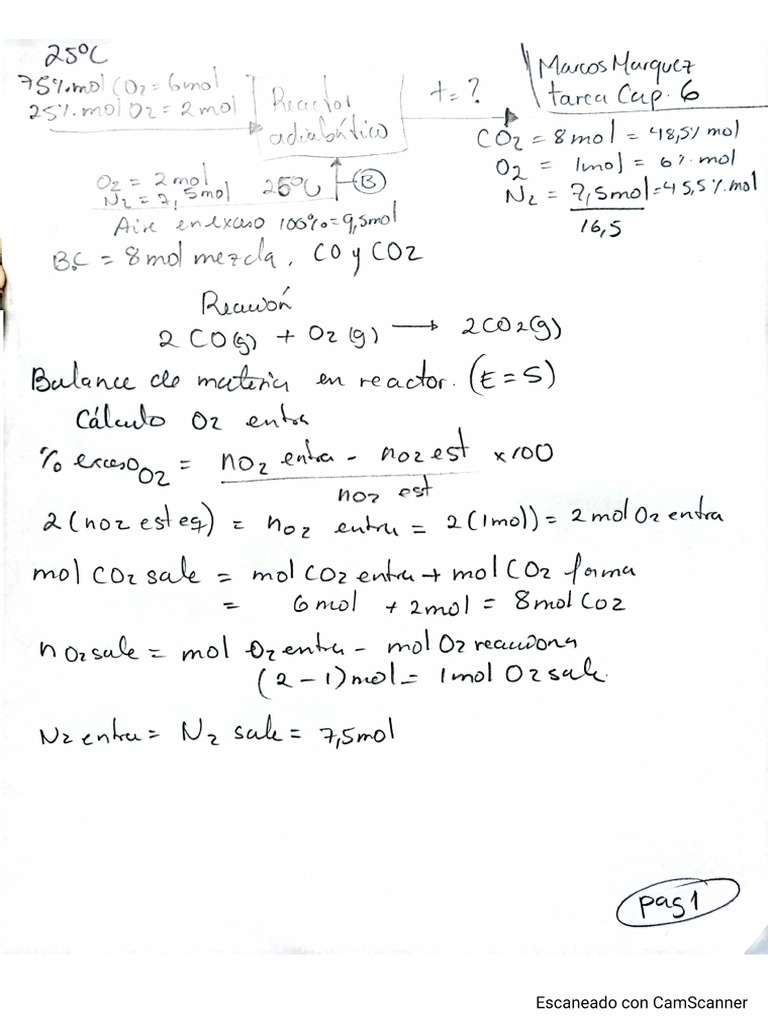 25°C
75%mol CO2 = 6mol
25%mol O2 = 2mol
Reactor
adiabático
t = ?
Marcos Marquez
tarea Cap. 6
CO2 = 8mol = 48,5% mol
O2 = 1mol = 6% mol
N2 = 7,5mol = 45,5%mol
16,5
O2 = 2mol
N2 = 7,5mol
25°C
B
Aire en exceso 100% = 9,5mol
B.C = 8 mol mezcla, CO y CO2
Reacción
2 CO(g) + O2(g) → 2CO2(g)
Balance de materia en reactor. (E = S)
Cálculo O2 entra
% exceso O2 = nO2 entra - nO2 est x100
nO2 est
2(nO2 esteq) = nO2 entra = 2(1mol) = 2 mol O2 entra
mol CO2 sale = mol CO2 entra + mol CO2 forma
= 6 mol + 2 mol = 8 mol CO2
nO2 sale = mol O2 entra - mol O2 reacciona
(2 - 1) mol = 1 mol O2 sale.
N2 entra = N2 sale = 7,5mol
pag 1
Escaneado con CamScanner